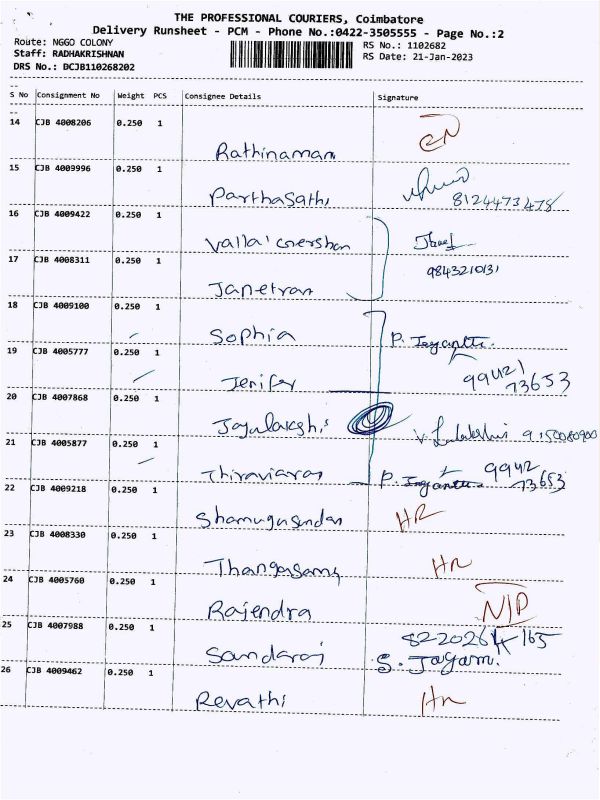 THE PROFESSIONAL COURIERS, Coimbatore
Delivery Runsheet - PCM - Phone No.:0422-3505555 - Page No.:2
Route: NGGO COLONY
RS No.: 1102682
Staff: RADHAKRISHNAN
RS Date: 21-Jan-2023
DRS No.: DCJB110268202
S No Consignment No Weight PCS Consignee Details Signature
14 CJB 4008206 0.250 1
Rathinamam
15 CJB 4009996 0.250 1
Parthasathi 8124473478
16 CJB 4009422 0.250 1
17 CJB 4008311 0.250 1 9843210131
Janetran
18 CJB 4009100 0.250 1
Sophia P. Jayanthi
19 CJB 4005777 0.250 1 99421 73653
Jenifer
20 CJB 4007868 0.250 1
Jayalakshi
21 CJB 4005877 0.250 1
P. Jayanthi 9942 73653
22 CJB 4009218 0.250 1
HR
23 CJB 4008330 0.250 1
Thangasamy HR
24 CJB 4005760 0.250 1
Rajendra N/P
25 CJB 4007988 0.250 1
Sandaraj S. Jayam
26 CJB 4009462 0.250 1
Revathi HR